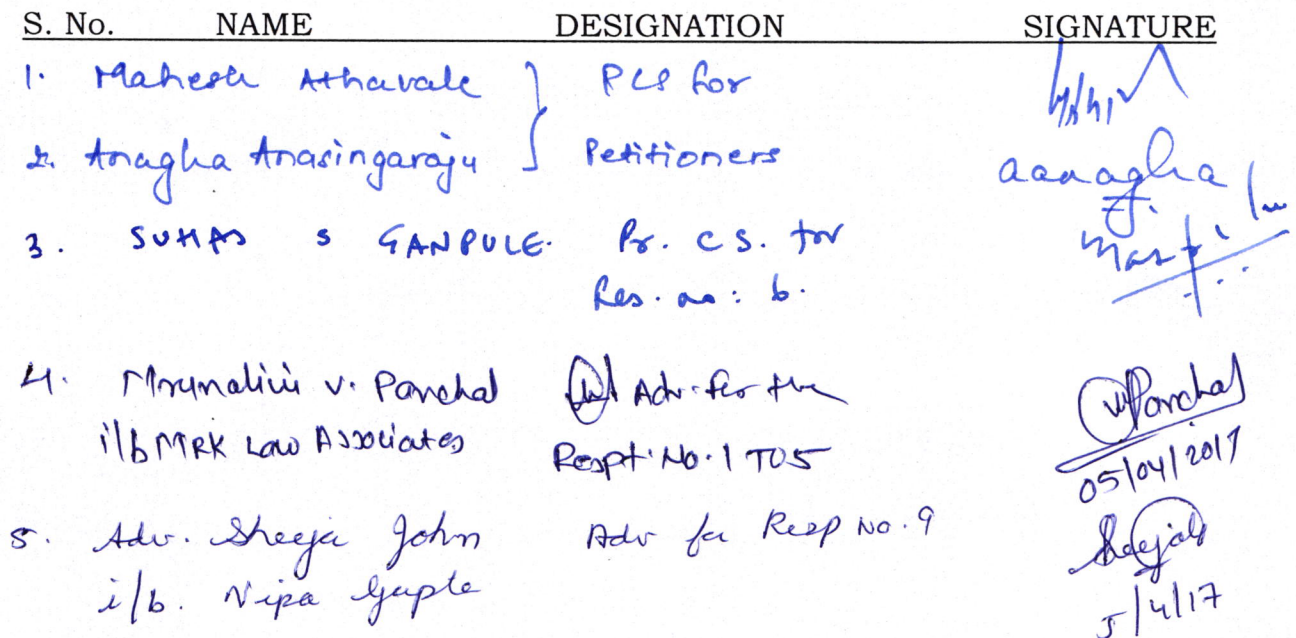 S. No. NAME DESIGNATION SIGNATURE
1. Mahesh Athavale } PCS for
2. Anagha Anasingaraju Petitioners
aanagha
3. SUHAS S GANPULE. Pr. C S. for
Res. no: 6.
4. Mrunalini V. Panchal Adv. for the
i/b MRK Law Associates Respt. No. 1 TO 5
VPanchal
05/04/2017
5. Adv. Sheeja John Adv for Resp No. 9
i/b. Nipa Gupte
Sheejal
5/4/17